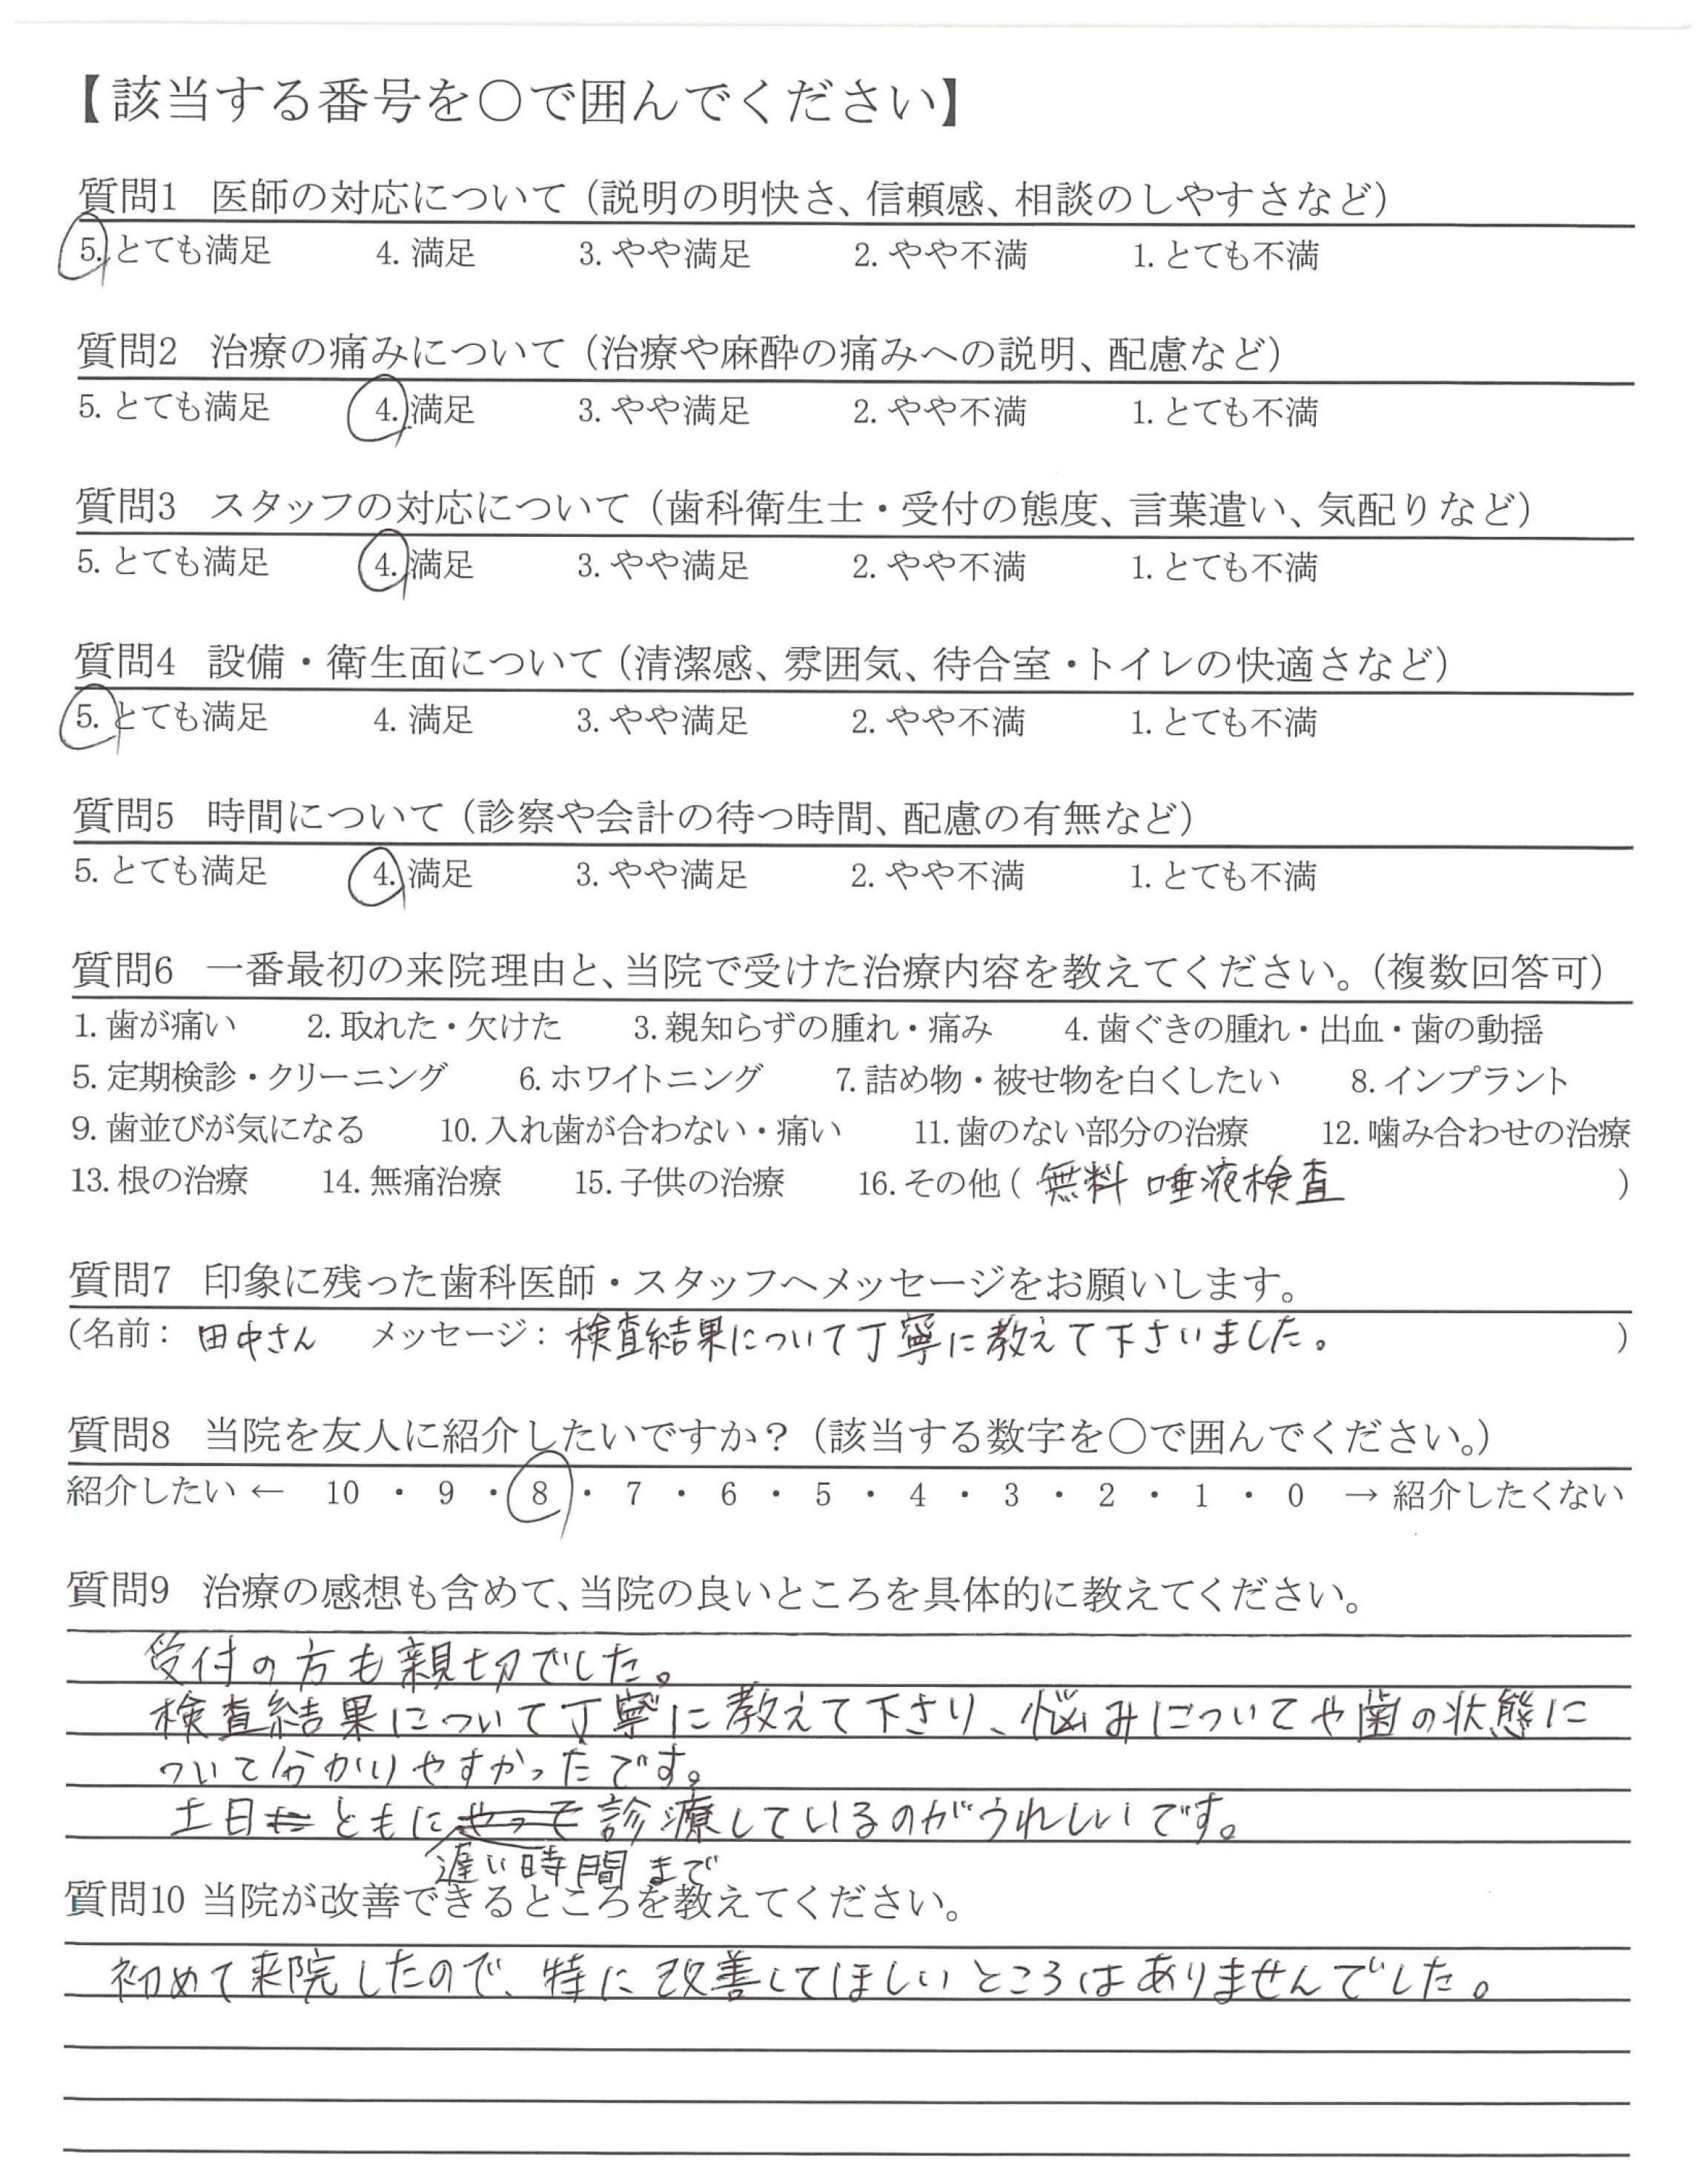 【該当する番号を○で囲んでください】
質問1 医師の対応について（説明の明快さ、信頼感、相談のしやすさなど）
5. とても満足 4. 満足 3. やや満足 2. やや不満 1. とても不満
質問2 治療の痛みについて（治療や麻酔の痛みへの説明、配慮など）
5. とても満足 4. 満足 3. やや満足 2. やや不満 1. とても不満
質問3 スタッフの対応について（歯科衛生士・受付の態度、言葉遣い、気配りなど）
5. とても満足 4. 満足 3. やや満足 2. やや不満 1. とても不満
質問4 設備・衛生面について（清潔感、雰囲気、待合室・トイレの快適さなど）
5. とても満足 4. 満足 3. やや満足 2. やや不満 1. とても不満
質問5 時間について（診察や会計の待つ時間、配慮の有無など）
5. とても満足 4. 満足 3. やや満足 2. やや不満 1. とても不満
質問6 一番最初の来院理由と、当院で受けた治療内容を教えてください。（複数回答可）
1. 歯が痛い 2. 取れた・欠けた 3. 親知らずの腫れ・痛み 4. 歯ぐきの腫れ・出血・歯の動揺
5. 定期検診・クリーニング 6. ホワイトニング 7. 詰め物・被せ物を白くしたい 8. インプラント
9. 歯並びが気になる 10. 入れ歯が合わない・痛い 11. 歯のない部分の治療 12. 噛み合わせの治療
13. 根の治療 14. 無痛治療 15. 子供の治療 16. その他（無料 唾液検査）
質問7 印象に残った歯科医師・スタッフへメッセージをお願いします。
（名前：田中さん メッセージ：検査結果について丁寧に教えて下さいました。）
質問8 当院を友人に紹介したいですか？（該当する数字を○で囲んでください。）
紹介したい ← 10 ・ 9 ・ 8 ・ 7 ・ 6 ・ 5 ・ 4 ・ 3 ・ 2 ・ 1 ・ 0 → 紹介したくない
質問9 治療の感想も含めて、当院の良いところを具体的に教えてください。
受付の方も親切でした。
検査結果について丁寧に教えて下さり、悩みについてや歯の状態に
ついて分かりやすかったです。
土日ともに診療しているのがうれしいです。
遅い時間まで
質問10 当院が改善できるところを教えてください。
初めて来院したので、特に改善してほしいところはありませんでした。